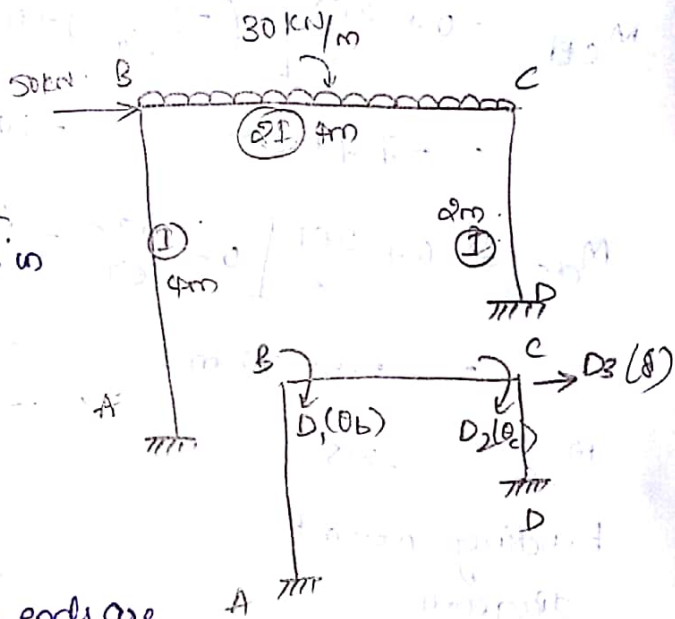 30 KN/m
50KN B C
2I 4m
I 4m
2m I
D
A
is
B C D3 (δ)
D1(θb) D2(θc)
D
A
ends are